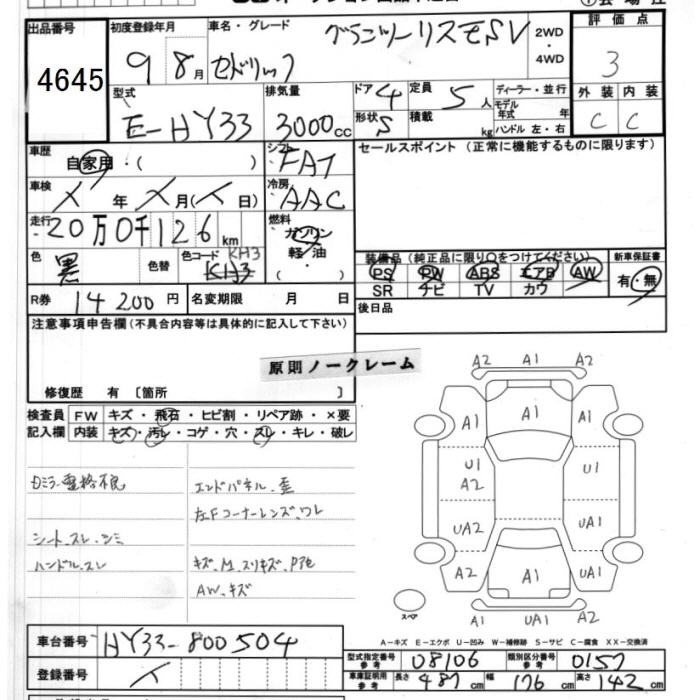 出品番号 初度登録年月 車名・グレード グランツーリスモSV 2WD・4WD 評価点
4645 9 8月 セドリック 3
型式 排気量 ドア 4 定員 5人 ディーラー・並行 外装 内装
E-HY33 3000cc 形状 S 積載 kg モデル年式 年 ハンドル 左・右 C C
車歴 自家用・( ) シフト FAT セールスポイント (正常に機能するものに限ります)
車検 メ 年 メ月(メ日) 冷房 AAC
走行 20万0千126km 燃料 ガソリン 軽油 ( )
色 黒 色替 色コード KH3 KH3 装備品(純正品に限り○をつけてください) 新車保証書
PS PW ABS エアB AW 有・無
SR ナビ TV カワ
R券 14200円 名変期限 月 日 後日品
注意事項申告欄(不具合内容等は具体的に記入して下さい)
原則ノークレーム
修復歴 有 〔箇所 〕
検査員 FW キズ・飛石・ヒビ割・リペア跡・×要
記入欄 内装 キズ・汚レ・コゲ・穴・スレ・キレ・破レ
A2 A1 A2
A1 A1 A1
U1 A2 U1
UA2 UA1
A2 A1 UA1
A1 UA1 A2
スペア
Dミラー電格不良 エンドパネル、歪
左Fコーナーレンズ、ワレ
シート、スレ、シミ
ハンドル、スレ キズ、M、スリキズ、P色
AW、キズ
A-キズ E-エクボ U-凹み W-補修跡 S-サビ C-腐食 XX-交換済
車台番号 HY33-800504
登録番号 メ
型式指定番号 参考 08106 類別区分番号 参考 0157
車庫証明用 参考 長さ 487cm 幅 176cm 高さ 142cm